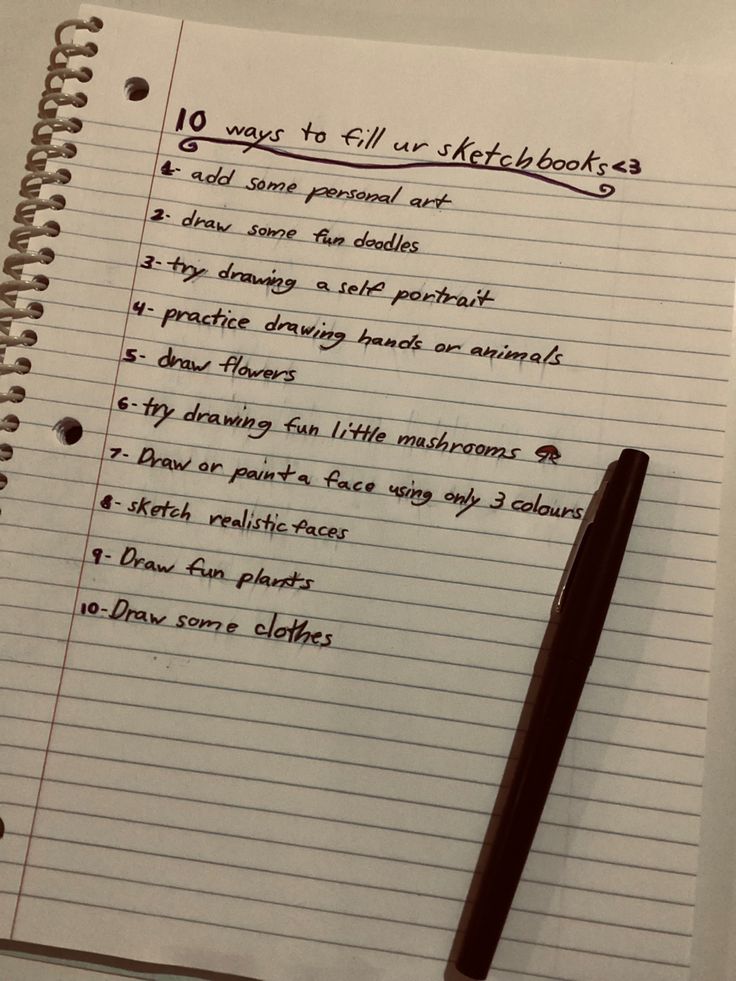 10 ways to fill ur sketchbooks <3
1- add some personal art
2- draw some fun doodles
3- try drawing a self portrait
4- practice drawing hands or animals
5- draw flowers
6- try drawing fun little mushrooms 🍄
7- Draw or paint a face using only 3 colours
8- sketch realistic faces
9- Draw fun plants
10- Draw some clothes